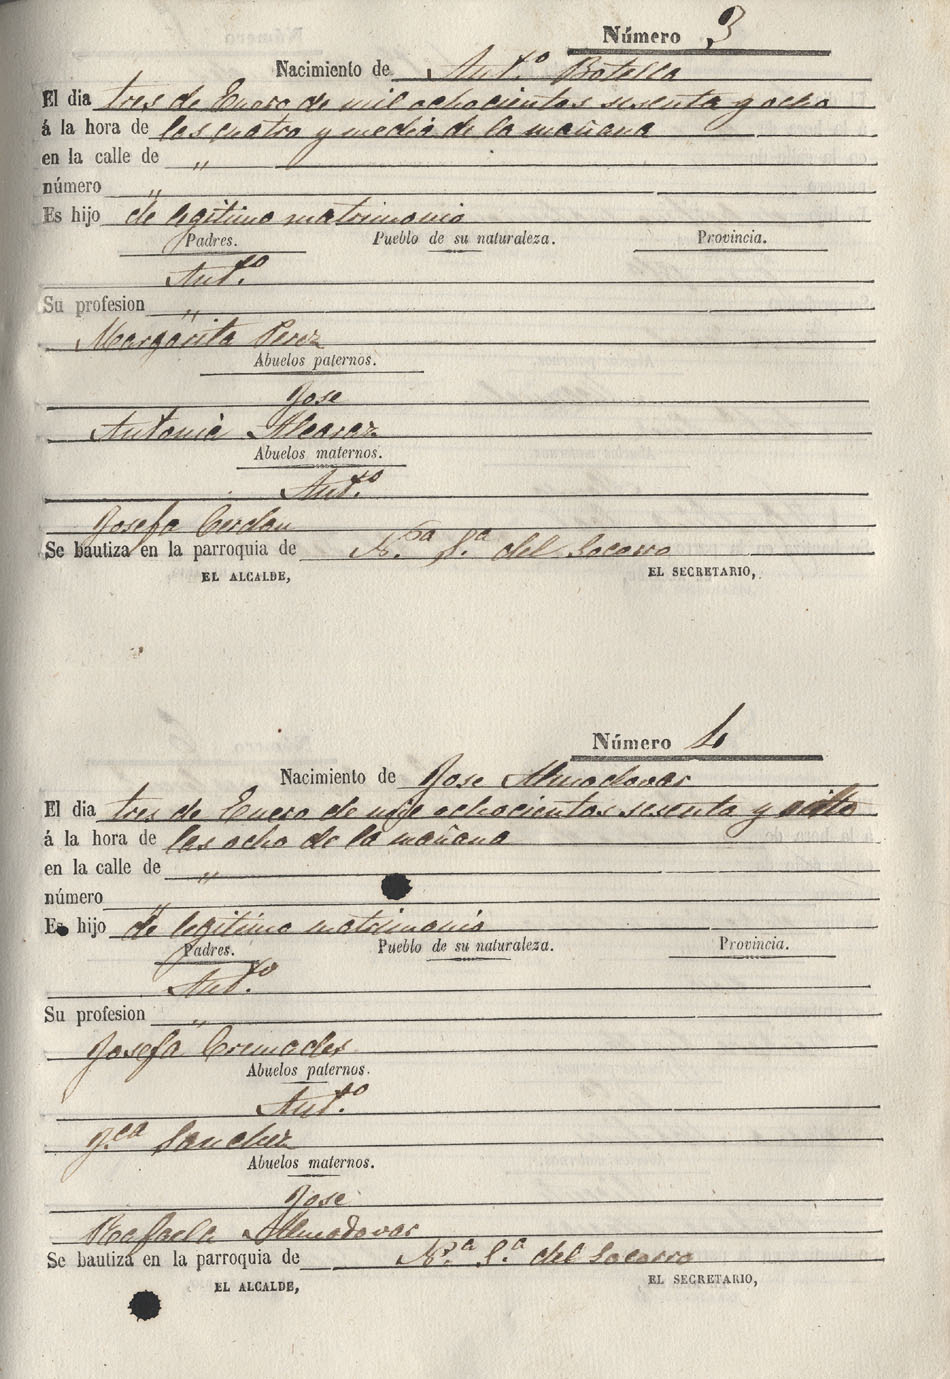 Número 3
Nacimiento de Ant.º Botella
El dia tres de Enero de mil ochocientos sesenta y ocho
á la hora de las cuatro y media de la mañana
en la calle de "
número "
Es hijo de legitimo matrimonio
Padres. Pueblo de su naturaleza. Provincia.
Ant.º
Su profesion "
Margarita Perez
Abuelos paternos.
Jose
Antonia Alcaraz
Abuelos maternos.
Ant.º
Josefa Cerdan
Se bautiza en la parroquia de N.ª S.ª del Socorro
EL ALCALDE, EL SECRETARIO,
Número 4
Nacimiento de Jose Almodovar
El dia tres de Enero de mil ochocientos sesenta y ocho
á la hora de las ocho de la mañana
en la calle de "
número "
Es hijo de legitimo matrimonio
Padres. Pueblo de su naturaleza. Provincia.
Ant.º
Su profesion "
Josefa Cremades
Abuelos paternos.
Ant.º
Sanchez
Abuelos maternos.
Jose
Rafaela Almodovar
Se bautiza en la parroquia de N.ª S.ª del Socorro
EL ALCALDE, EL SECRETARIO,